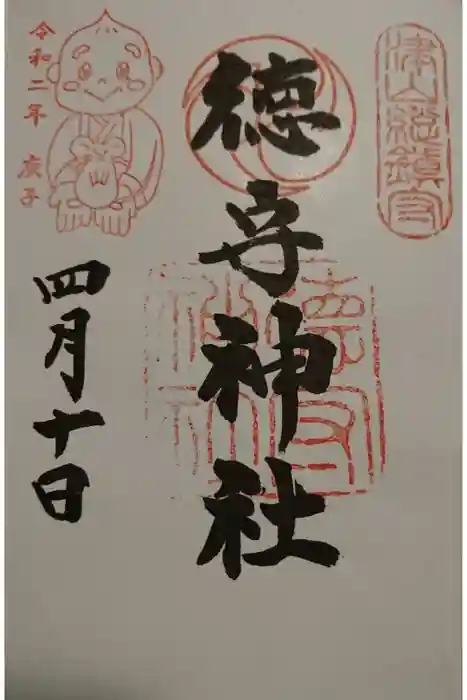 津山総鎮守
徳守神社
徳守
神社
四月十日
令和二年
庚子